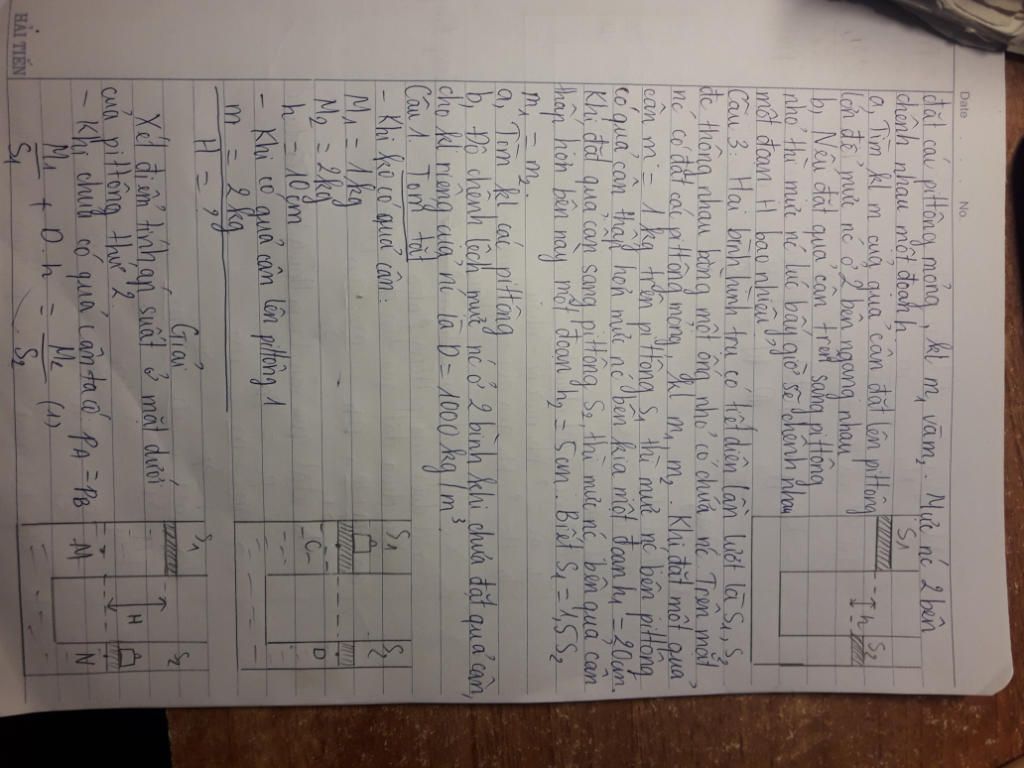 Date No.
đặt các pittông mỏng, kl m1 và m2. Mực nc 2 bên
chênh nhau một đoạn h.
a, Tìm kl m của quả cân đặt lên pittông
lớn để mực nc ở 2 bên ngang nhau
b, Nếu đặt quả cân trên sang pittông
nhỏ thì mực nc lúc bấy giờ sẽ chênh nhau
một đoạn H bao nhiêu?
S1 S2
h
Câu 3: Hai bình hình trụ có tiết diện lần lượt là S1, S2
đc thông nhau bằng một ống nhỏ, có chứa nc. Trên mặt
nc có đặt các pittông mỏng, kl m1, m2. Khi đặt một quả
cân m = 1kg trên pittông S1 thì mực nc bên pittông
có quả cân thấp hơn mực nc bên kia một đoạn h1 = 20cm.
Khi đặt quả cân sang pittông S2 thì mực nc bên quả cân
thấp hơn bên này một đoạn h2 = 5cm. Biết S1 = 1,5 S2
m1 = m2.
a, Tìm kl các pittông
b, Độ chênh lệch mực nc ở 2 bình khi chưa đặt quả cân,
cho kl riêng của nc là D = 1000 kg/m³.
Câu 1: Tóm tắt
- Khi ko có quả cân:
M1 = 1kg
M2 = 2kg
h = 10cm
- Khi có quả cân lên pittông 1
m = 2kg
H = ?
S1 S2
C D
Giải
Xét điểm tính áp suất ở mặt dưới
của pittông thứ 2
- Khi chưa có quả cân ta có PA = PB
M1/S1 + D.h = M2/S2 (1)
S1 S2
H
M N
HẢI TIẾN